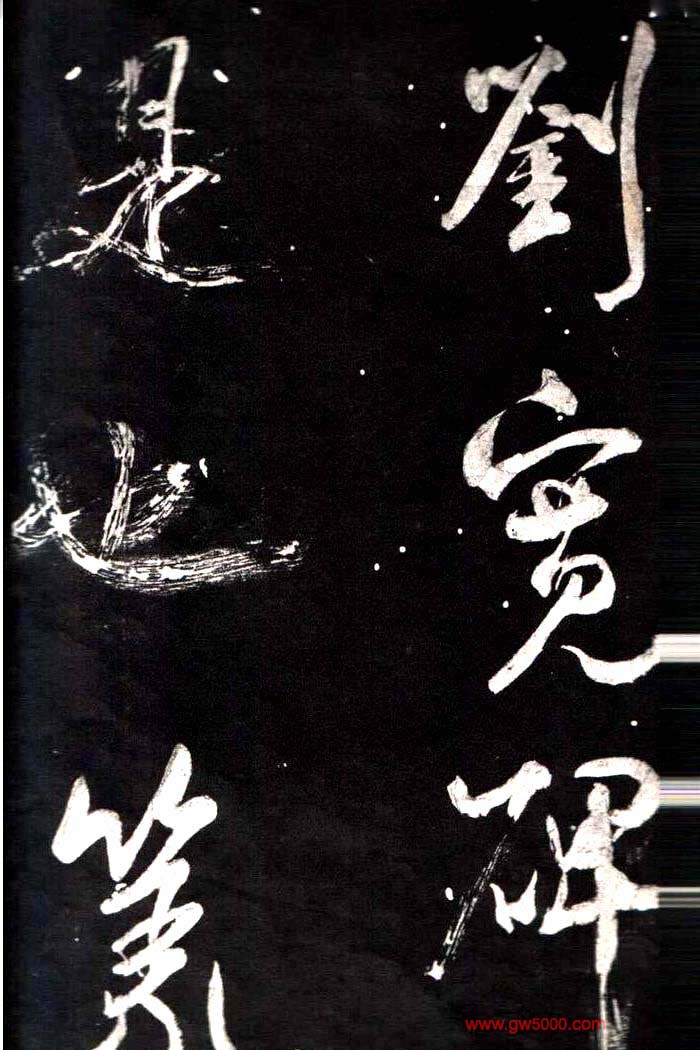 劉寬碑
是也篆
www.gw5000.com